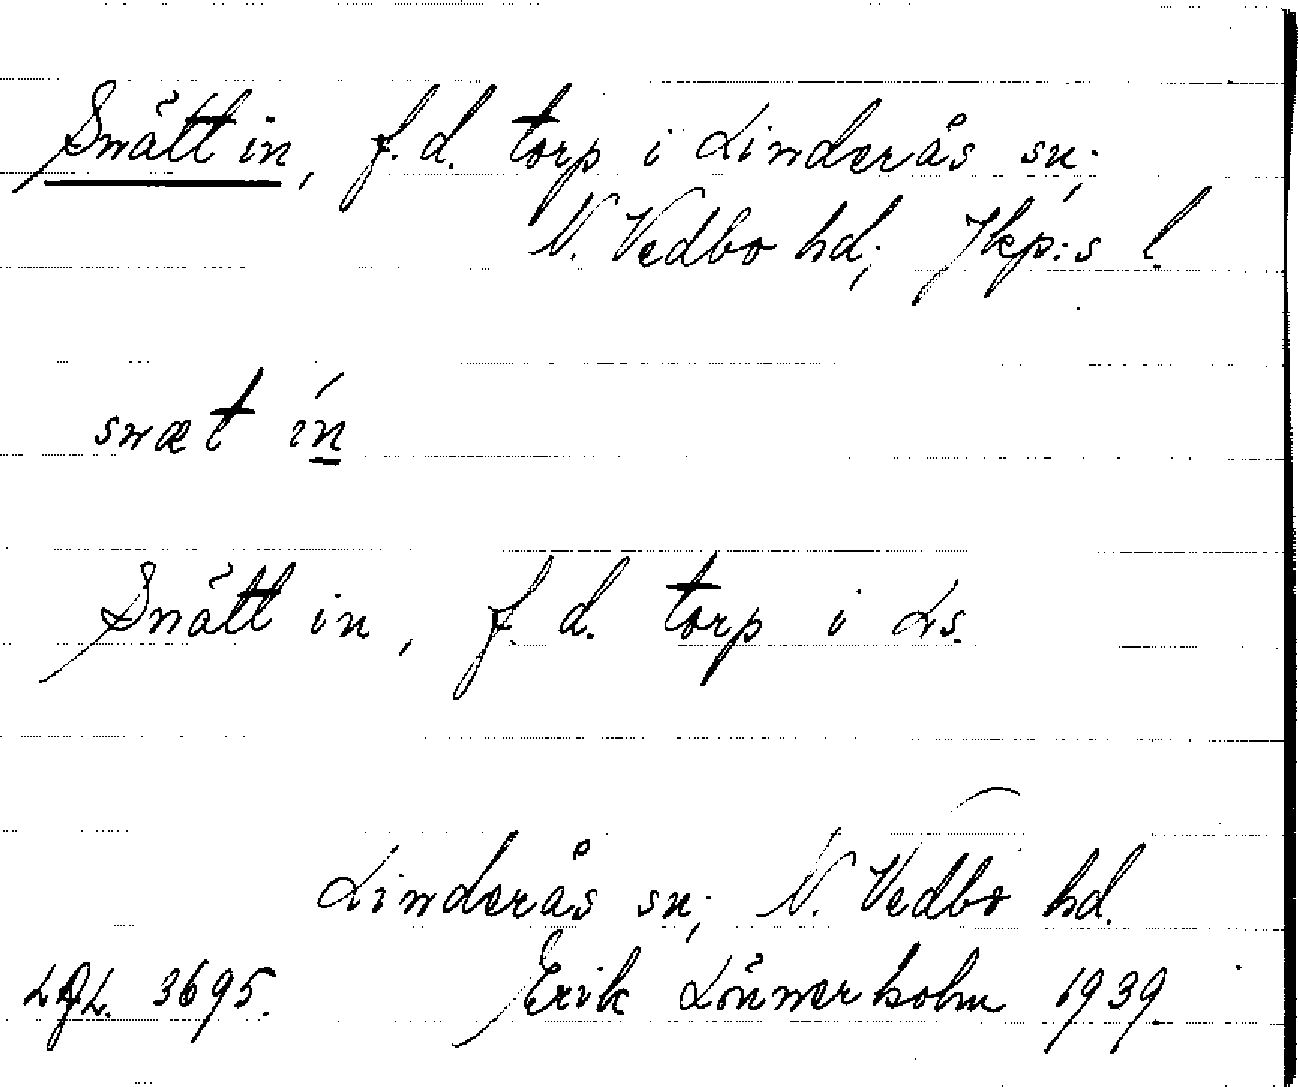 Snätt in, f.d. torp i Linderås sn;
N. Vedbo hd; Jkp:s l.
snæt ín
Snätt in, f.d. torp i Ls.
Linderås sn; N. Vedbo hd.
3695. Erik Lönnerholm 1939